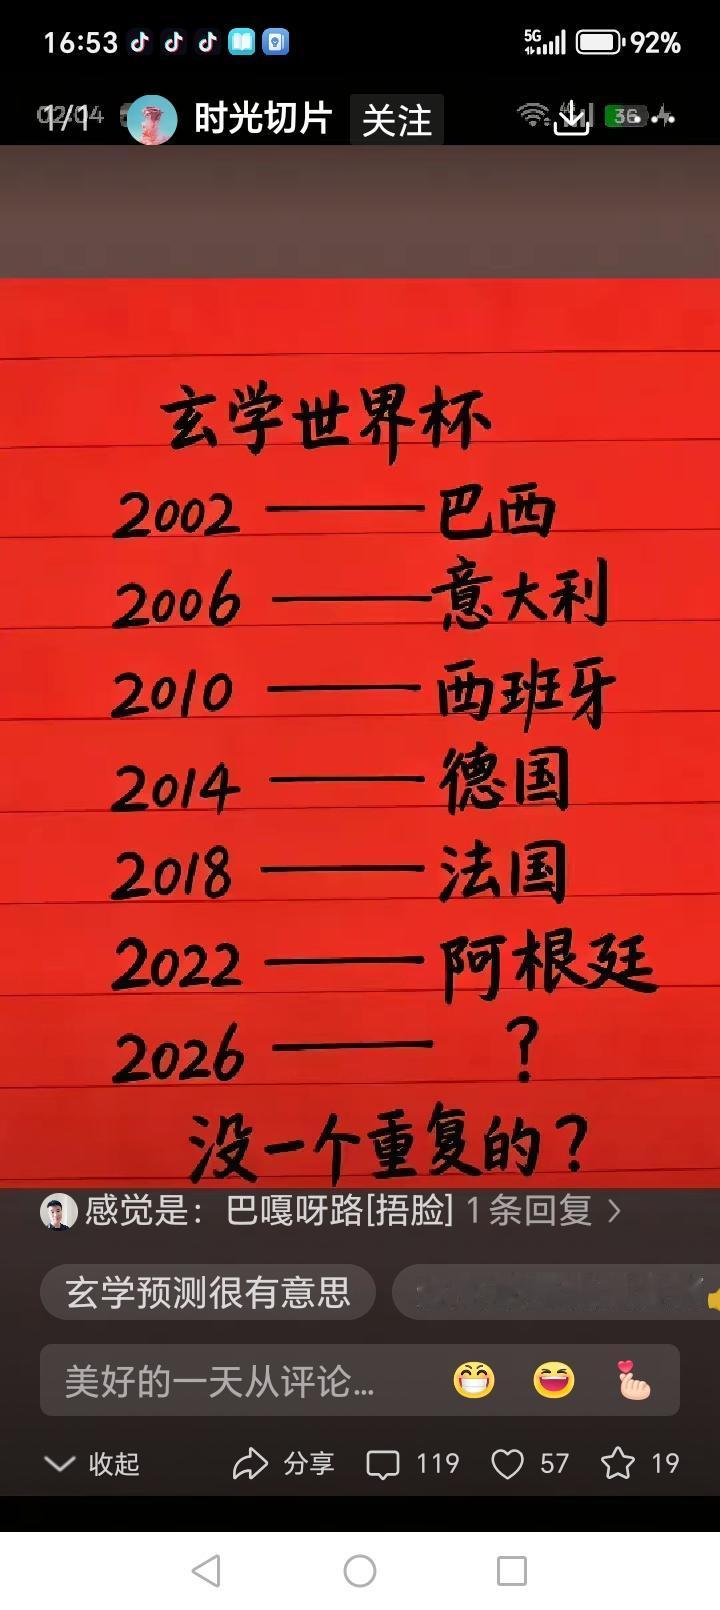 16:53 5G 92%
1/1 时光切片 关注
02:04 36
玄学世界杯
2002 —— 巴西
2006 —— 意大利
2010 —— 西班牙
2014 —— 德国
2018 —— 法国
2022 —— 阿根廷
2026 —— ?
没一个重复的?
感觉是：巴嘎呀路[捂脸] 1条回复 >
玄学预测很有意思
美好的一天从评论...
收起 分享 119 57 19